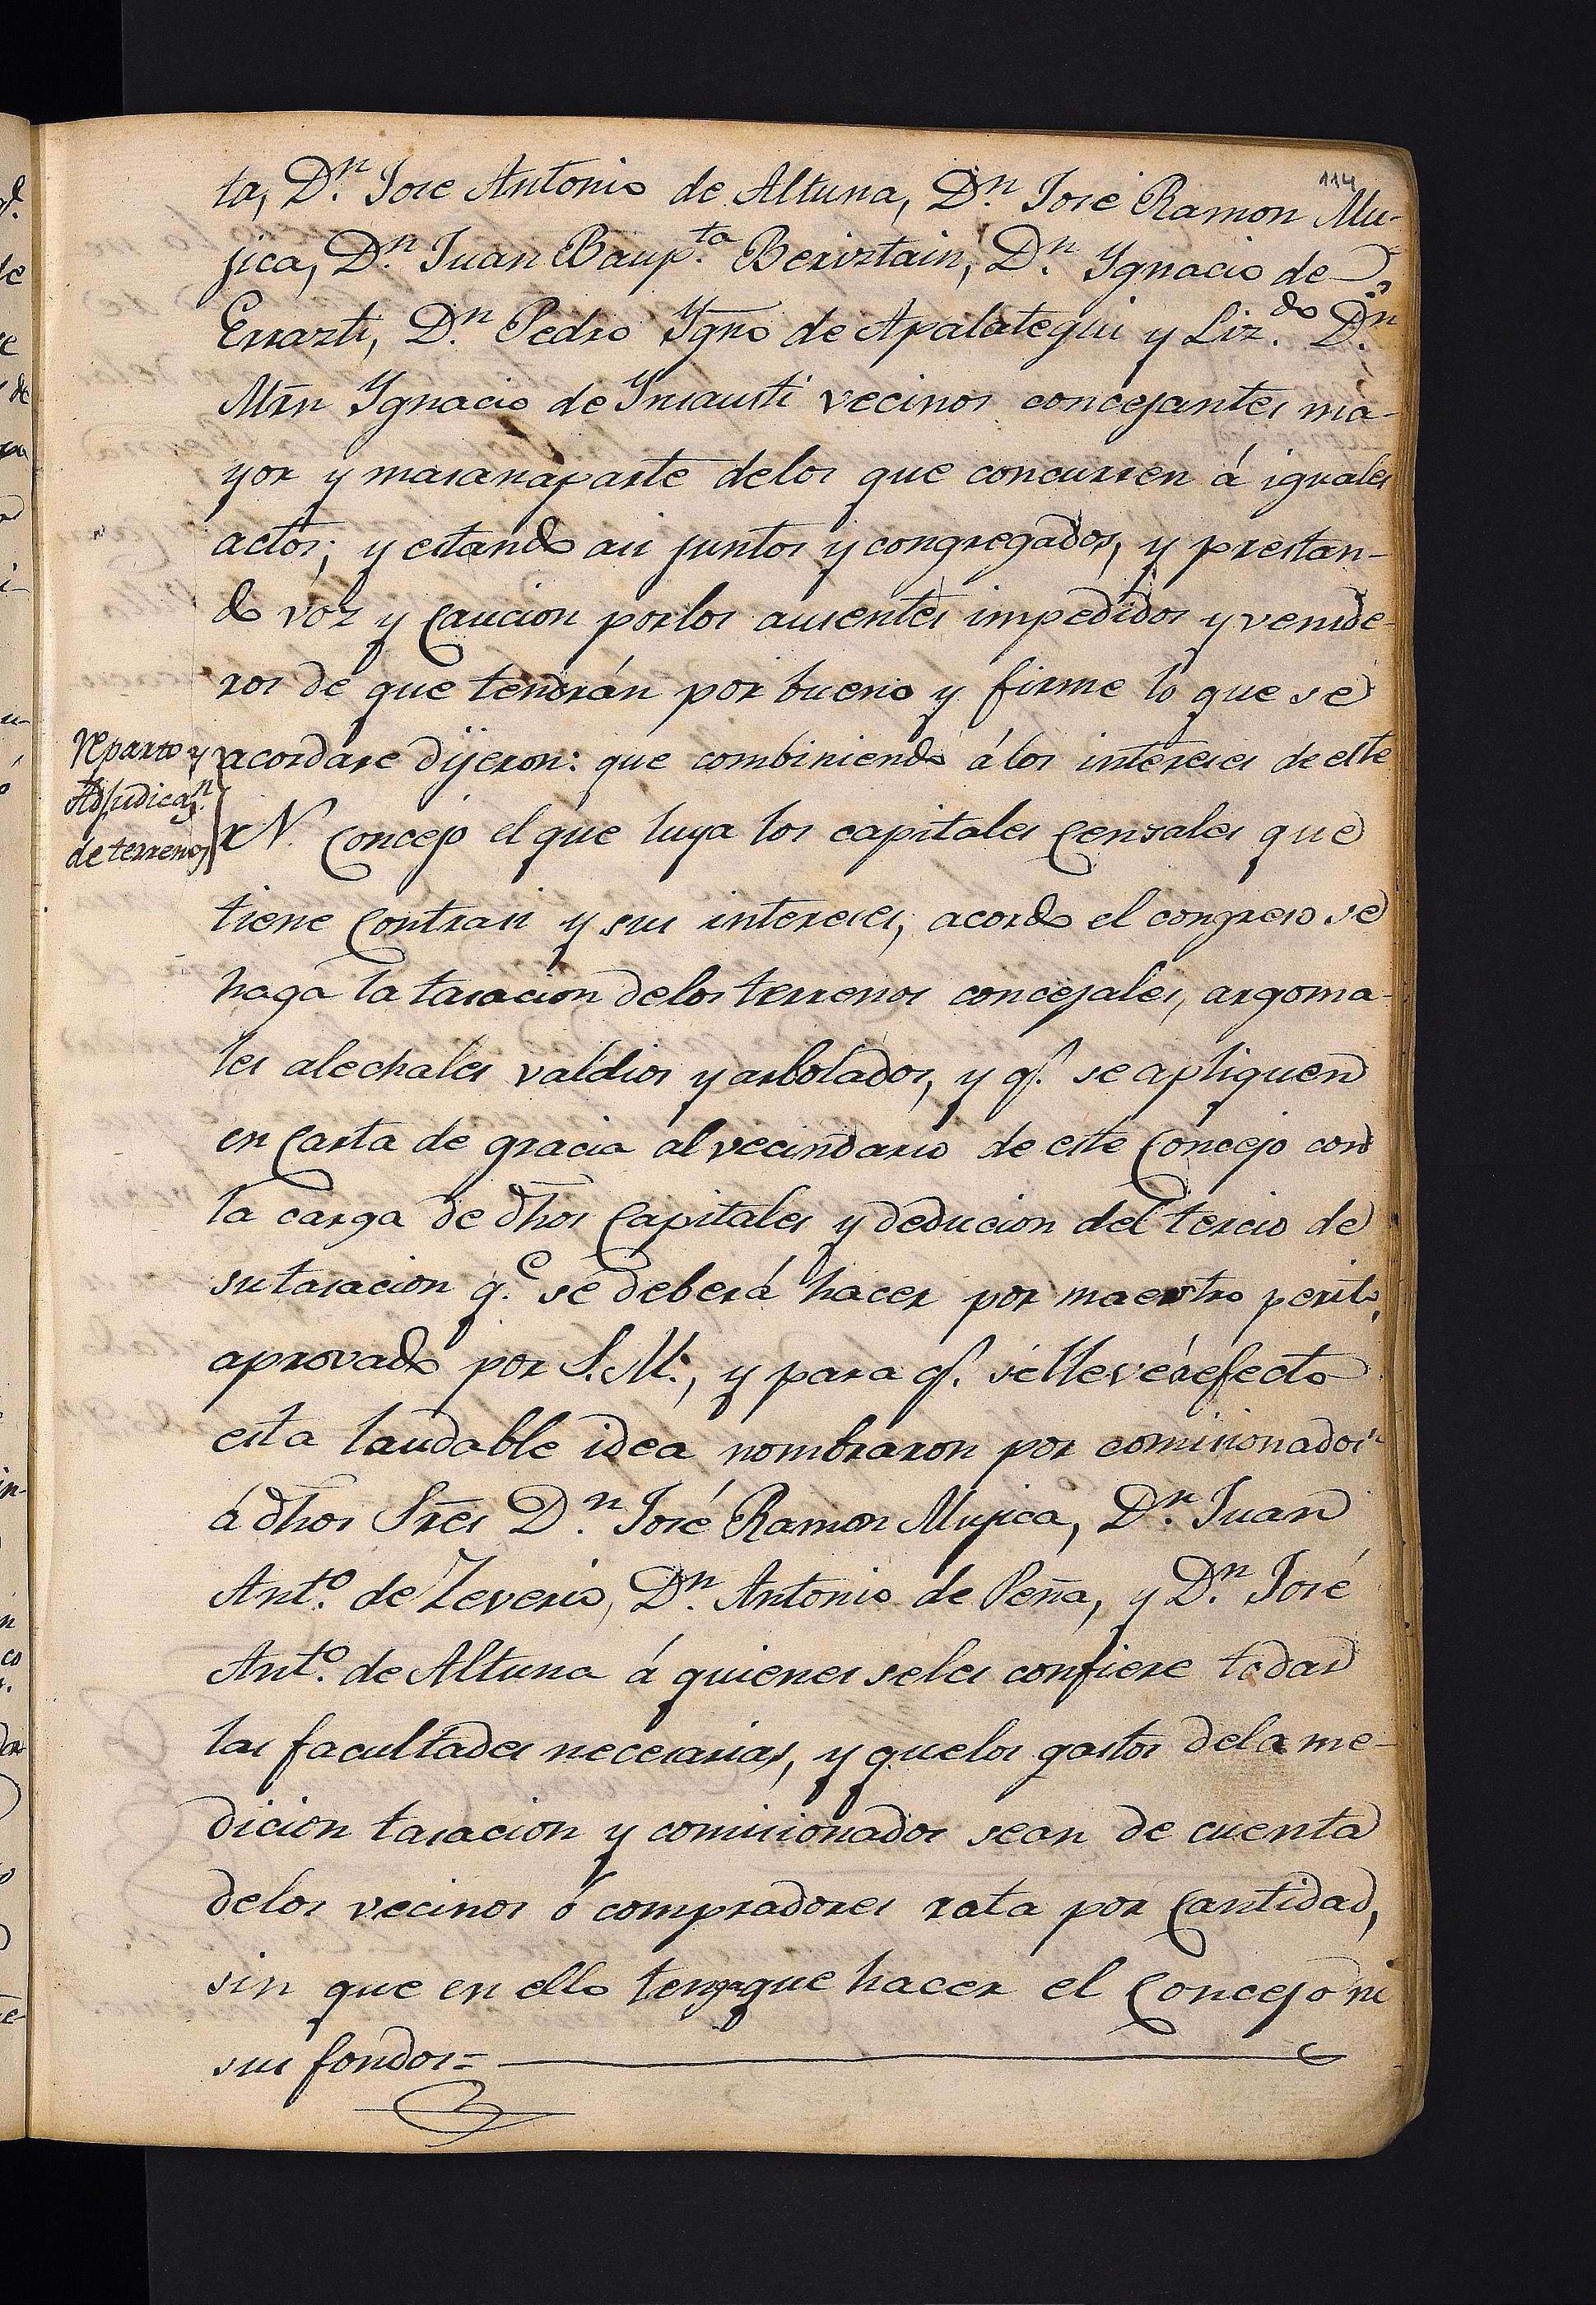 114
ta, D.n Jose Antonio de Altuna, D.n José Ramon Mu-
jica, D.n Juan Baup.ta Beristain, D.n Ygnacio de
Errazti, D.n Pedro Ygno de Apalategui y Liz.do D.n
Mrn Ygnacio de Insausti vecinos concejantes ma-
yor y masanaparte delos que concurren á iguales
actos; y estando asi juntos y congregados, y prestan-
do vóz y Caucion porlos ausentes impedidos y venide-
ros de que tendrán por bueno y firme lo que se
reparto y
Adjudica.n
de terrenos
acordare dijeron: que combiniendo álos intereses de este
N. Concejo el que luya los capitales Censales que
tiene Contrasi y sus intereses, acordo el congreso se
haga la tasacion delos terrenos concejales, argoma-
les alechales valdios y arbolados, y q.e se apliquen
en Carta de gracia al vecindario de este Concejo con
la carga de dhos Capitales y deducion del tercio de
su tasacion q.e se deberá hacer por maestro perito
aprovado por S.M., y para q.e sélleve á efecto
esta laudable idea nombraron por comisionados
á dhos Sres D.n José Ramon Mujica, D.n Juan
Ant.o de Zeverio, D.n Antonio de Peña, y D.n José
Ant.o de Altuna á quienes seles confiere todas
las facultades necesarias, y quelos gastos dela me-
dicion tasacion y comisionados sean de cuenta
delos vecinos ó compradores rata por Cantidad,
sin que en ello tenga que hacer el Concejo ni
sus fondos=